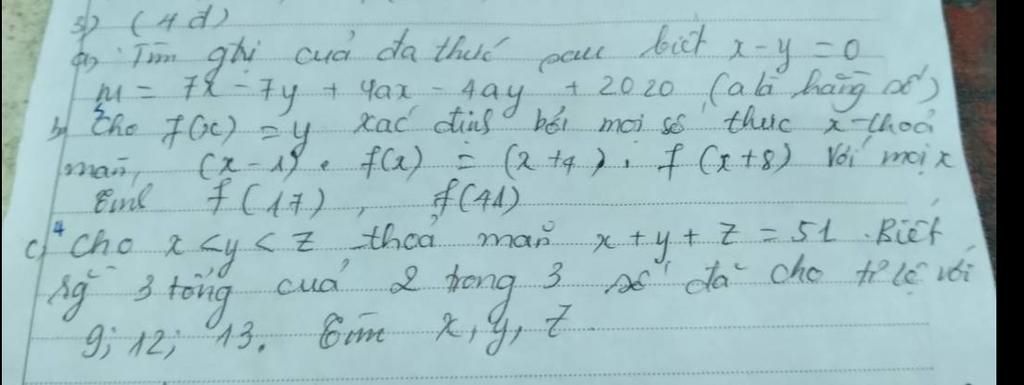 3) (4đ)
a, Tìm gtri cuả đa thức sau biết x-y=0
M = 7x - 7y + 4ax - 4ay + 2020 (a là hằng số)
b, 3 Cho f(x) = y xác định bởi mọi số thực x thoả
mãn, (x-1). f(x) = (x+4). f(x+8) Với mọi x
Tính f(17), f(41)
c, 4 Cho x < y < z thoả mãn x+y+z=51. Biết
rg 3 tổng cuả 2 trong 3 số đã cho tỉ lệ với
9; 12; 13. Tìm x, y, z